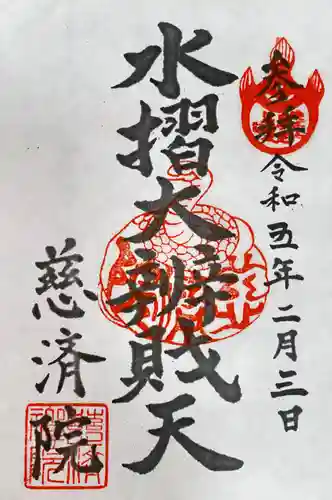 奉拝
令和五年二月三日
水摺大辨財天
慈済院